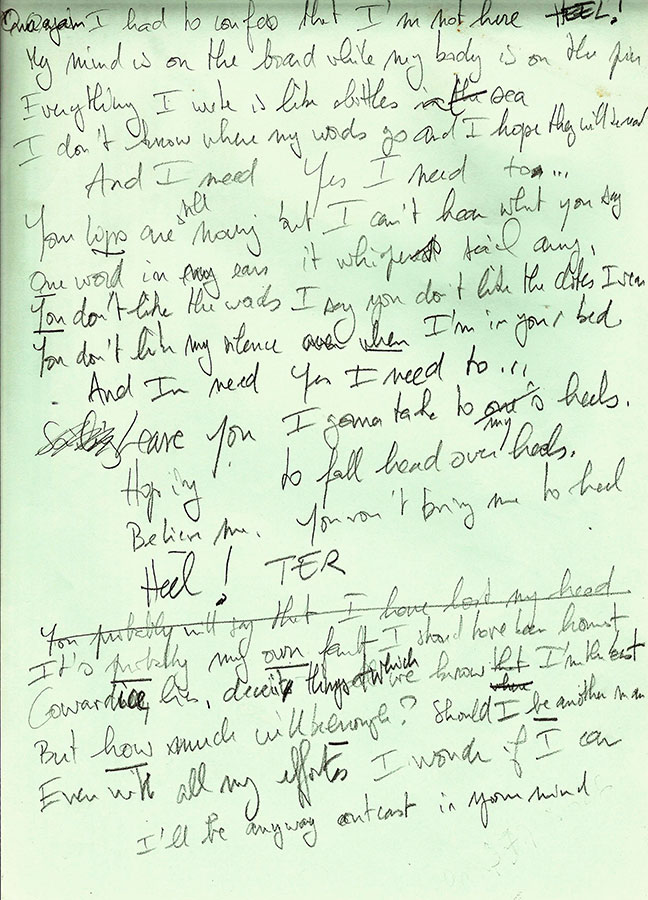 Once again I had to confess that I'm not here HEEL!
My mind is on the board while my body is on the pier
Everything I write is like bottles in the sea
I don't know where my words go and I hope they will be read
And I need Yes I need to...
Your lips are still moving but I can't hear what you say
One word in my ears it whispers sail away,
You don't like the words I say you don't like the clothes I wear
You don't like my silence even when I'm in your bed
And I'm need Yes I need to...
Leave you I gonna take to my heels.
Hoping to fall head over heels.
Believe me. You won't bring me to heel
Heel! TER
You probably will say that I have lost my head
It's probably my own fault I should have been honest
Cowardice, lies, deceits things which we know that I'm the best
But how much will be enough? Should I be another man
Even with all my efforts I wonder if I can
I'll be anyway outcast in your mind